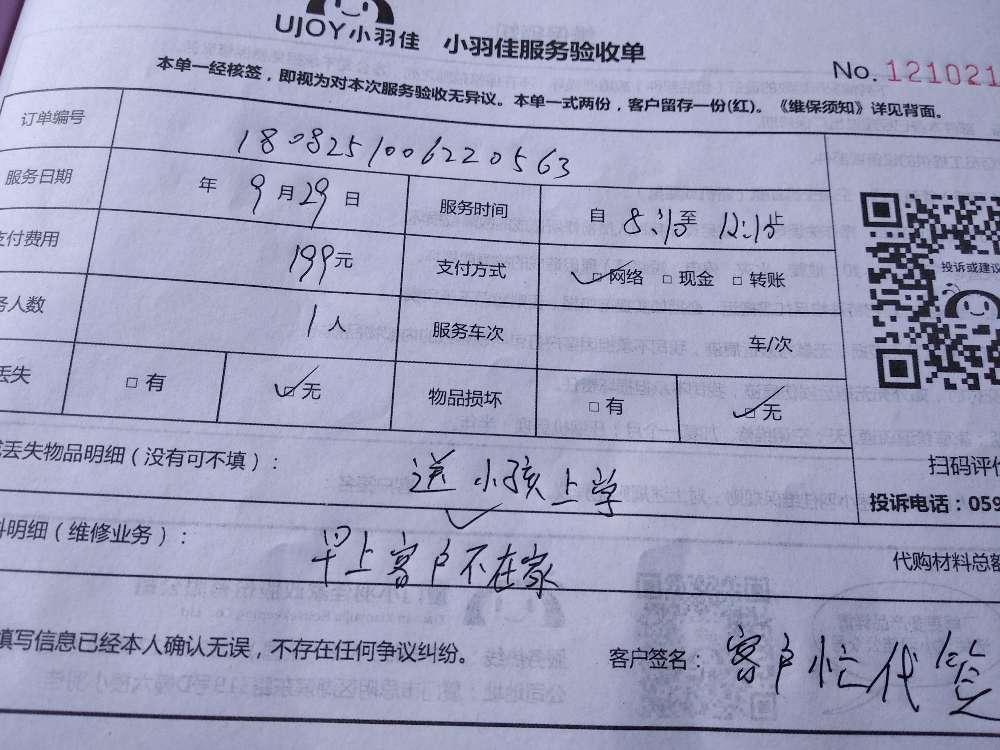 UJOY小羽佳 小羽佳服务验收单
No. 121021
本单一经核签，即视为对本次服务验收无异议。本单一式两份，客户留存一份(红)。《维保须知》详见背面。
订单编号 1808251006220563
服务日期 年 9月29日 服务时间 自 8:15至 12:15止
支付费用 199元 支付方式 □网络 □现金 □转账
务人数 1人 服务车次 车/次
丢失 □有 □无 物品损坏 □有 □无
投诉或建议
扫码评价
丢失物品明细（没有可不填）： 送小孩上学
投诉电话：059
料明细（维修业务）： 早上客户不在家
代购材料总额
填写信息已经本人确认无误，不存在任何争议纠纷。 客户签名： 客户忙代签